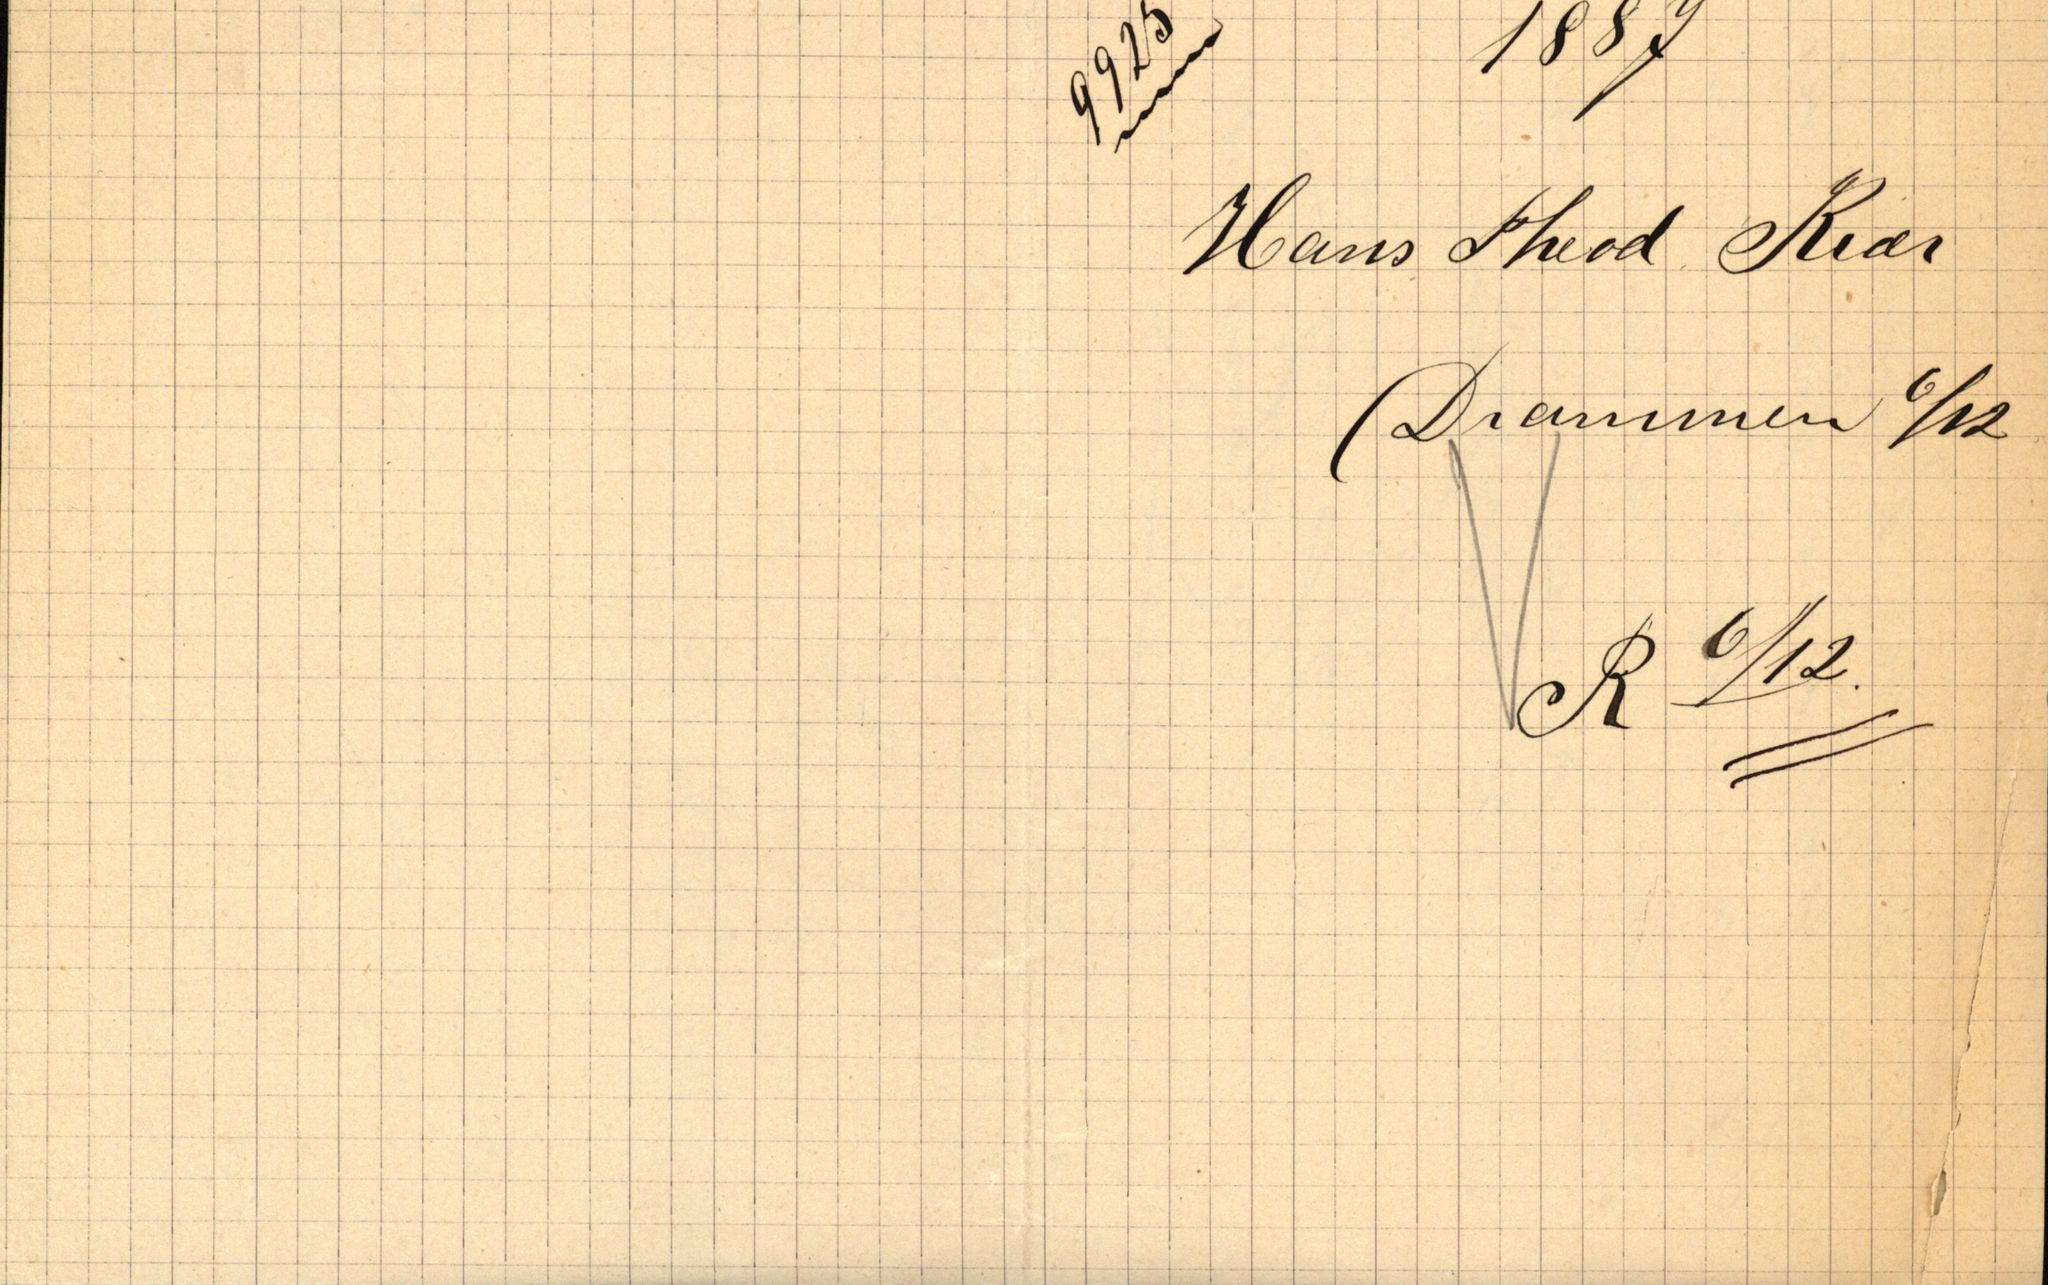 9925
1887
Hans Theod. Kiær
Drammen 6/12
R 6/12.